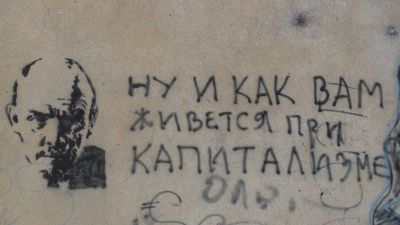 НУ И КАК ВАМ
ЖИВЕТСЯ ПРИ
КАПИТАЛИЗМЕ